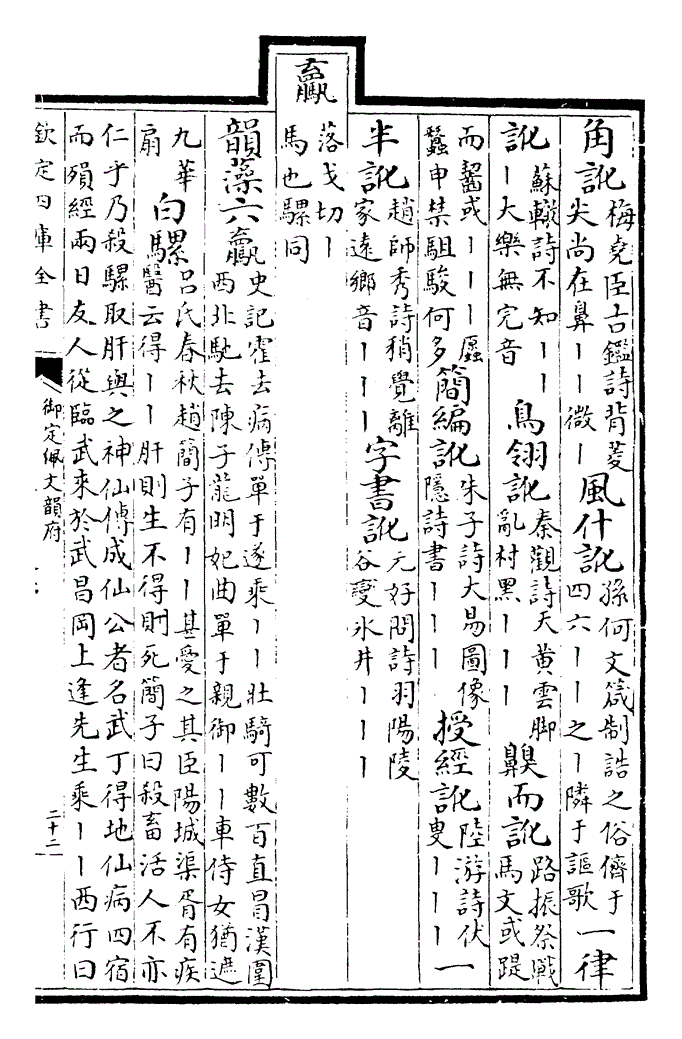 角訛梅堯臣古鑑詩背菱
尖尚在鼻丨丨微丨風什訛孫何文箴制誥之俗儕于
四六丨丨之丨隣于謳歌一律
訛蘇轍詩不知丨丨
丨大樂無完音鳥翎訛秦觀詩天黄雲脚
亂村黒丨丨丨齅而訛路振祭戰
馬文或踶
而齧或丨丨丨
蠶申禁駔駿何多簡編訛朱子詩大易圖像
隱詩書丨丨丨授經訛陸游詩伏
叟丨丨丨一
半訛趙師秀詩稍覺離
家遠鄉音丨丨丨字書訛元好問詩羽陽陵
谷變氷井丨丨丨
驘
落戈切丨
馬也騾同
韻藻六驘史記霍去病傳單于遂乘丨丨壯騎可數百直冒漢圍
西北馳去陳子龍明妃曲單于親御丨丨車侍女猶遮
九華
扇白騾吕氏春秋趙簡子有丨丨甚愛之其臣陽城渠胥有疾
醫云得丨丨肝則生不得則死簡子曰殺畜活人不亦
仁乎乃殺騾取肝與之神仙傳成仙公者名武丁得地仙病四宿
而殞經兩日友人從臨武來於武昌岡上逢先生乘丨丨西行曰
欽定四庫全書
御定佩文韻府
二十二